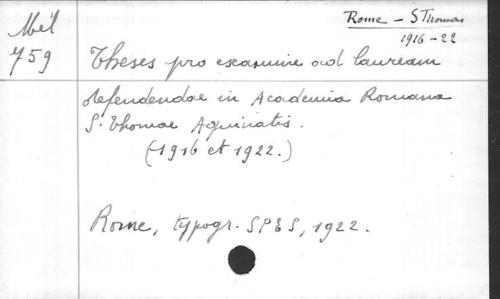 Mél
759
Rome - S Thomas
1916-22
Theses pro examine ad lauream
defendendae in Academia Romana
S. Thomae Aquinatis.
(1916 et 1922.)
Rome, typogr. SPES, 1922.